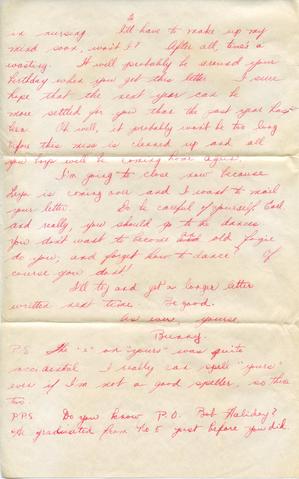 6
in nursing I'll have to make up my
mind soon, won't I? After all, time's a
wasting. It will probably be around your
birthday when you get this letter. I sure
hope that the next year can be
more settled for you than the past year has
been. Oh well, it probably won't be too long
before this mess is cleared up and all
you boys will be coming home again.
I'm going to close now because
is coming over and I want to mail
your letter. Do be careful of yourself
and really, you should go to the dances
You don't want to become an old fogie
do you, and forget how to dance? Of
course you don't!
I'll try and get a longer letter
written next time. Be good.
As ever, yours,
Bunny.
P.S. The "s" on "yours" was quite
accidental. I really can spell "yours"
even if I'm not a good speller, so there
too.
P.P.S. Do you know P.O. Bob Haliday?
He graduated from No 5 just before you did.